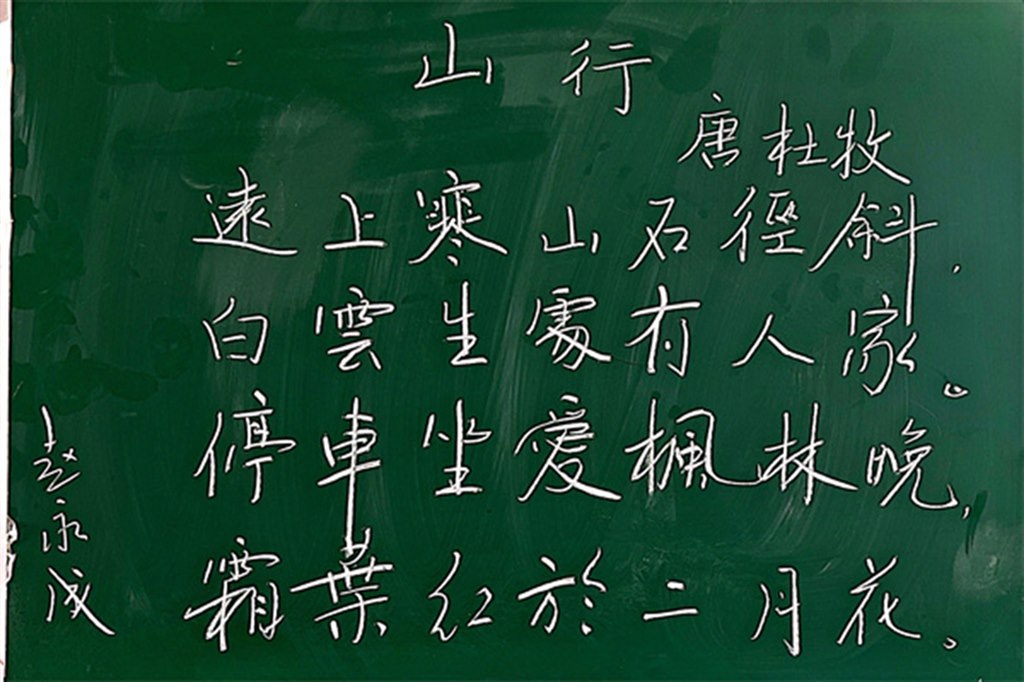 山行
唐杜牧
遠上寒山石徑斜.
白雲生處有人家。
停車坐爱楓林晚,
霜葉紅於二月花。
赵永成